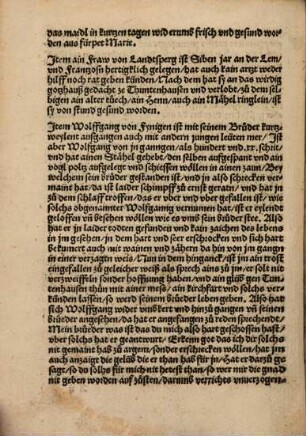 das maidl in kurtzen tagen wid erumb frisch vnd gesund wor-
den aus fürpet Marie.
Jtem ain Fraw von Landtsperg ist Siben jar an der Lem/
vnd Frantzosn hertigklich gelegen/hat auch kain artzt weder
hilff noch rat geben künden/Nach dem hat sy an das wirdig
gotzhauß gedacht ze Thuntenhausen vnd verlobt/zu dem sel-
bigen ain alter türch/ain Henn/auch ain Mähel ringlein/ist
sy von stund gesund worden.
Jtem Wolffgang von Fnigen ist mit seinem Brüder kurtz-
weylent außgangen auch mit andern jungen leüten mer/Jst
aber Wolfgang von jn ganngen/als hundert vnd.xx.schrit/vnd
hat ainen Stähel gehebt/den selben aufgespant vnd ain
vogl poltz aufgelegt vnd schiessen wöllen in ainen zain/Bey
welchem sein brüder gestanden ist/vnd jn also schrecken ver-
maint hat/da ist laider schimpff zu ernst geratn/vnd hat jn
zu dem schlaff troffen/das er vber vnd vber gefallen ist/wie
solchs obgenannter Wolfgang vernumen hat/ist er eylendt
geloffen vñ besehen wöllen wie es vmb sein brüder stee. Also
hat er jn laider todten gefunden vnd kain zaichen des lebens
in jm gesehen/jn dem hart vnd ser erschrocken vnd sich hart
bekumert auch mit wainen vnd zähern da hin von jn gangn
in einer verzagten weis/Nun in dem hinganck/ist jm ain trost
eingefallen zu geleicher weiß als sprech ains zu jm/er sol nit
verzweiffln sonder hoffnung haben/vnd ain glüß gen Tun-
tenhausen thün mit ainer mess/ain kirchfart vnd solchs ver-
künden lassen/so werd seinem brüder leben geben. Also hat
sich Wolffgang wider vmbkert vnd hin zu gangen vñ seinen
brüder angesehen/da hat er angefangen zu reden sprechende/
Mein brüeder was ist das du mich also hart geschossen hast/
vber solchs hat er geantwurt/Erkenn got das ich dir solchs
nit gemaint hab zu argem/sonder erschrecken wöllen/hat jm
auch anzaigt die gelüb die er than hab für jn/Hat er darzu ge-
sagt/so du solhs für mich nit hetest than/so wer mir die gnad
nit geben worden auf züsten/darumb verrichts vnuerzogen-